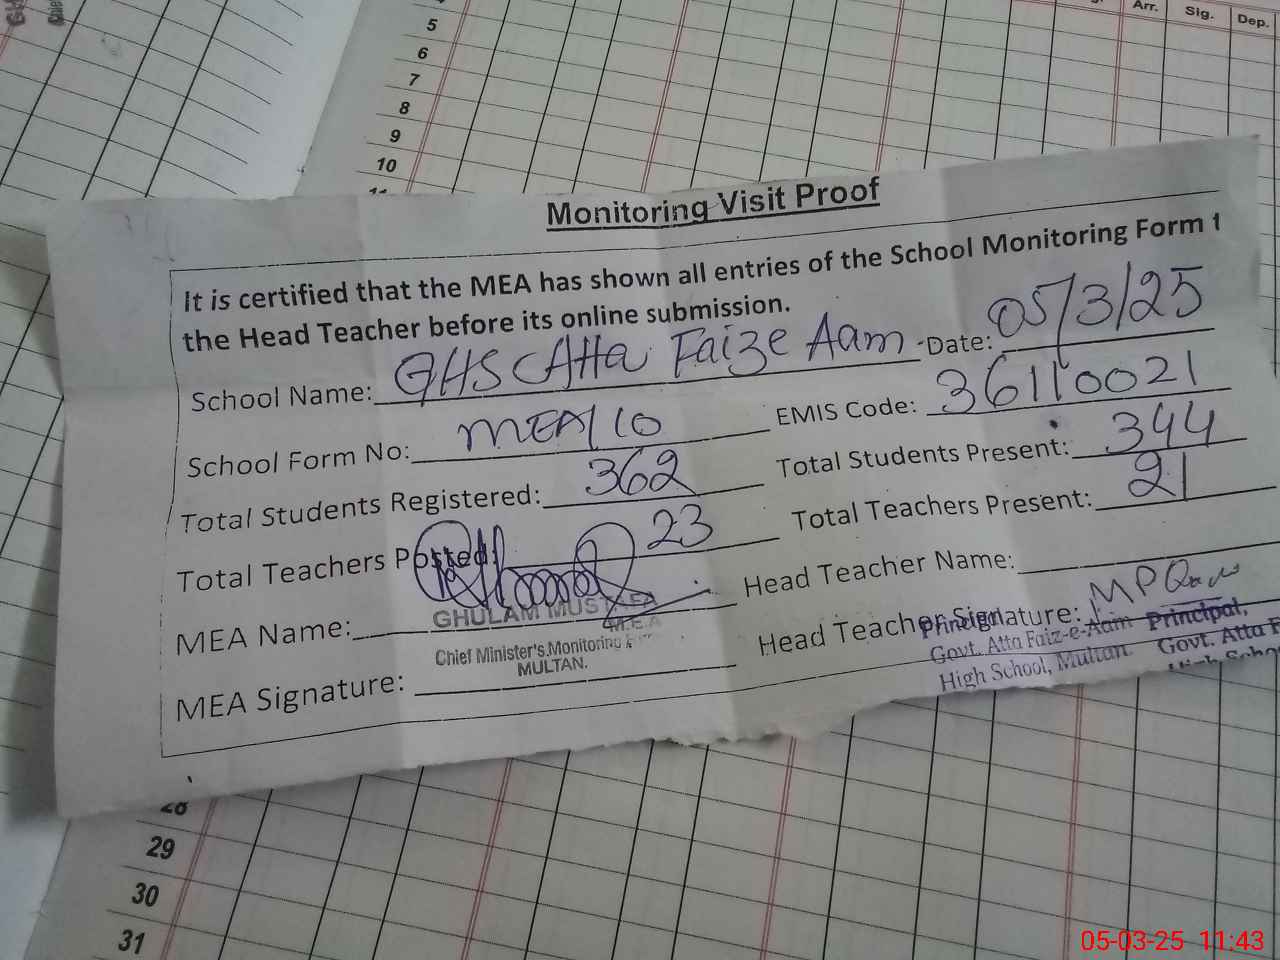 Arr. Sig. Dep.
5
6
7
8
9
10
Monitoring Visit Proof
It is certified that the MEA has shown all entries of the School Monitoring Form 1
the Head Teacher before its online submission.
School Name: GHS Atta Faize Aam Date: 05/3/25
School Form No: MEA/10 EMIS Code: 36110021
Total Students Registered: 362 Total Students Present: 344
Total Teachers Posted: 23 Total Teachers Present: 21
MEA Name: Head Teacher Name:
GHULAM MUSTAFA
M.E.A
Chief Minister's Monitoring
MULTAN.
MEA Signature: Head Teacher Signature:
Principal
Govt. Atta Faiz-e-Aam
High School, Multan
Principal,
Govt. Atta F
High Scho
28
29
30
31
05-03-25 11:43